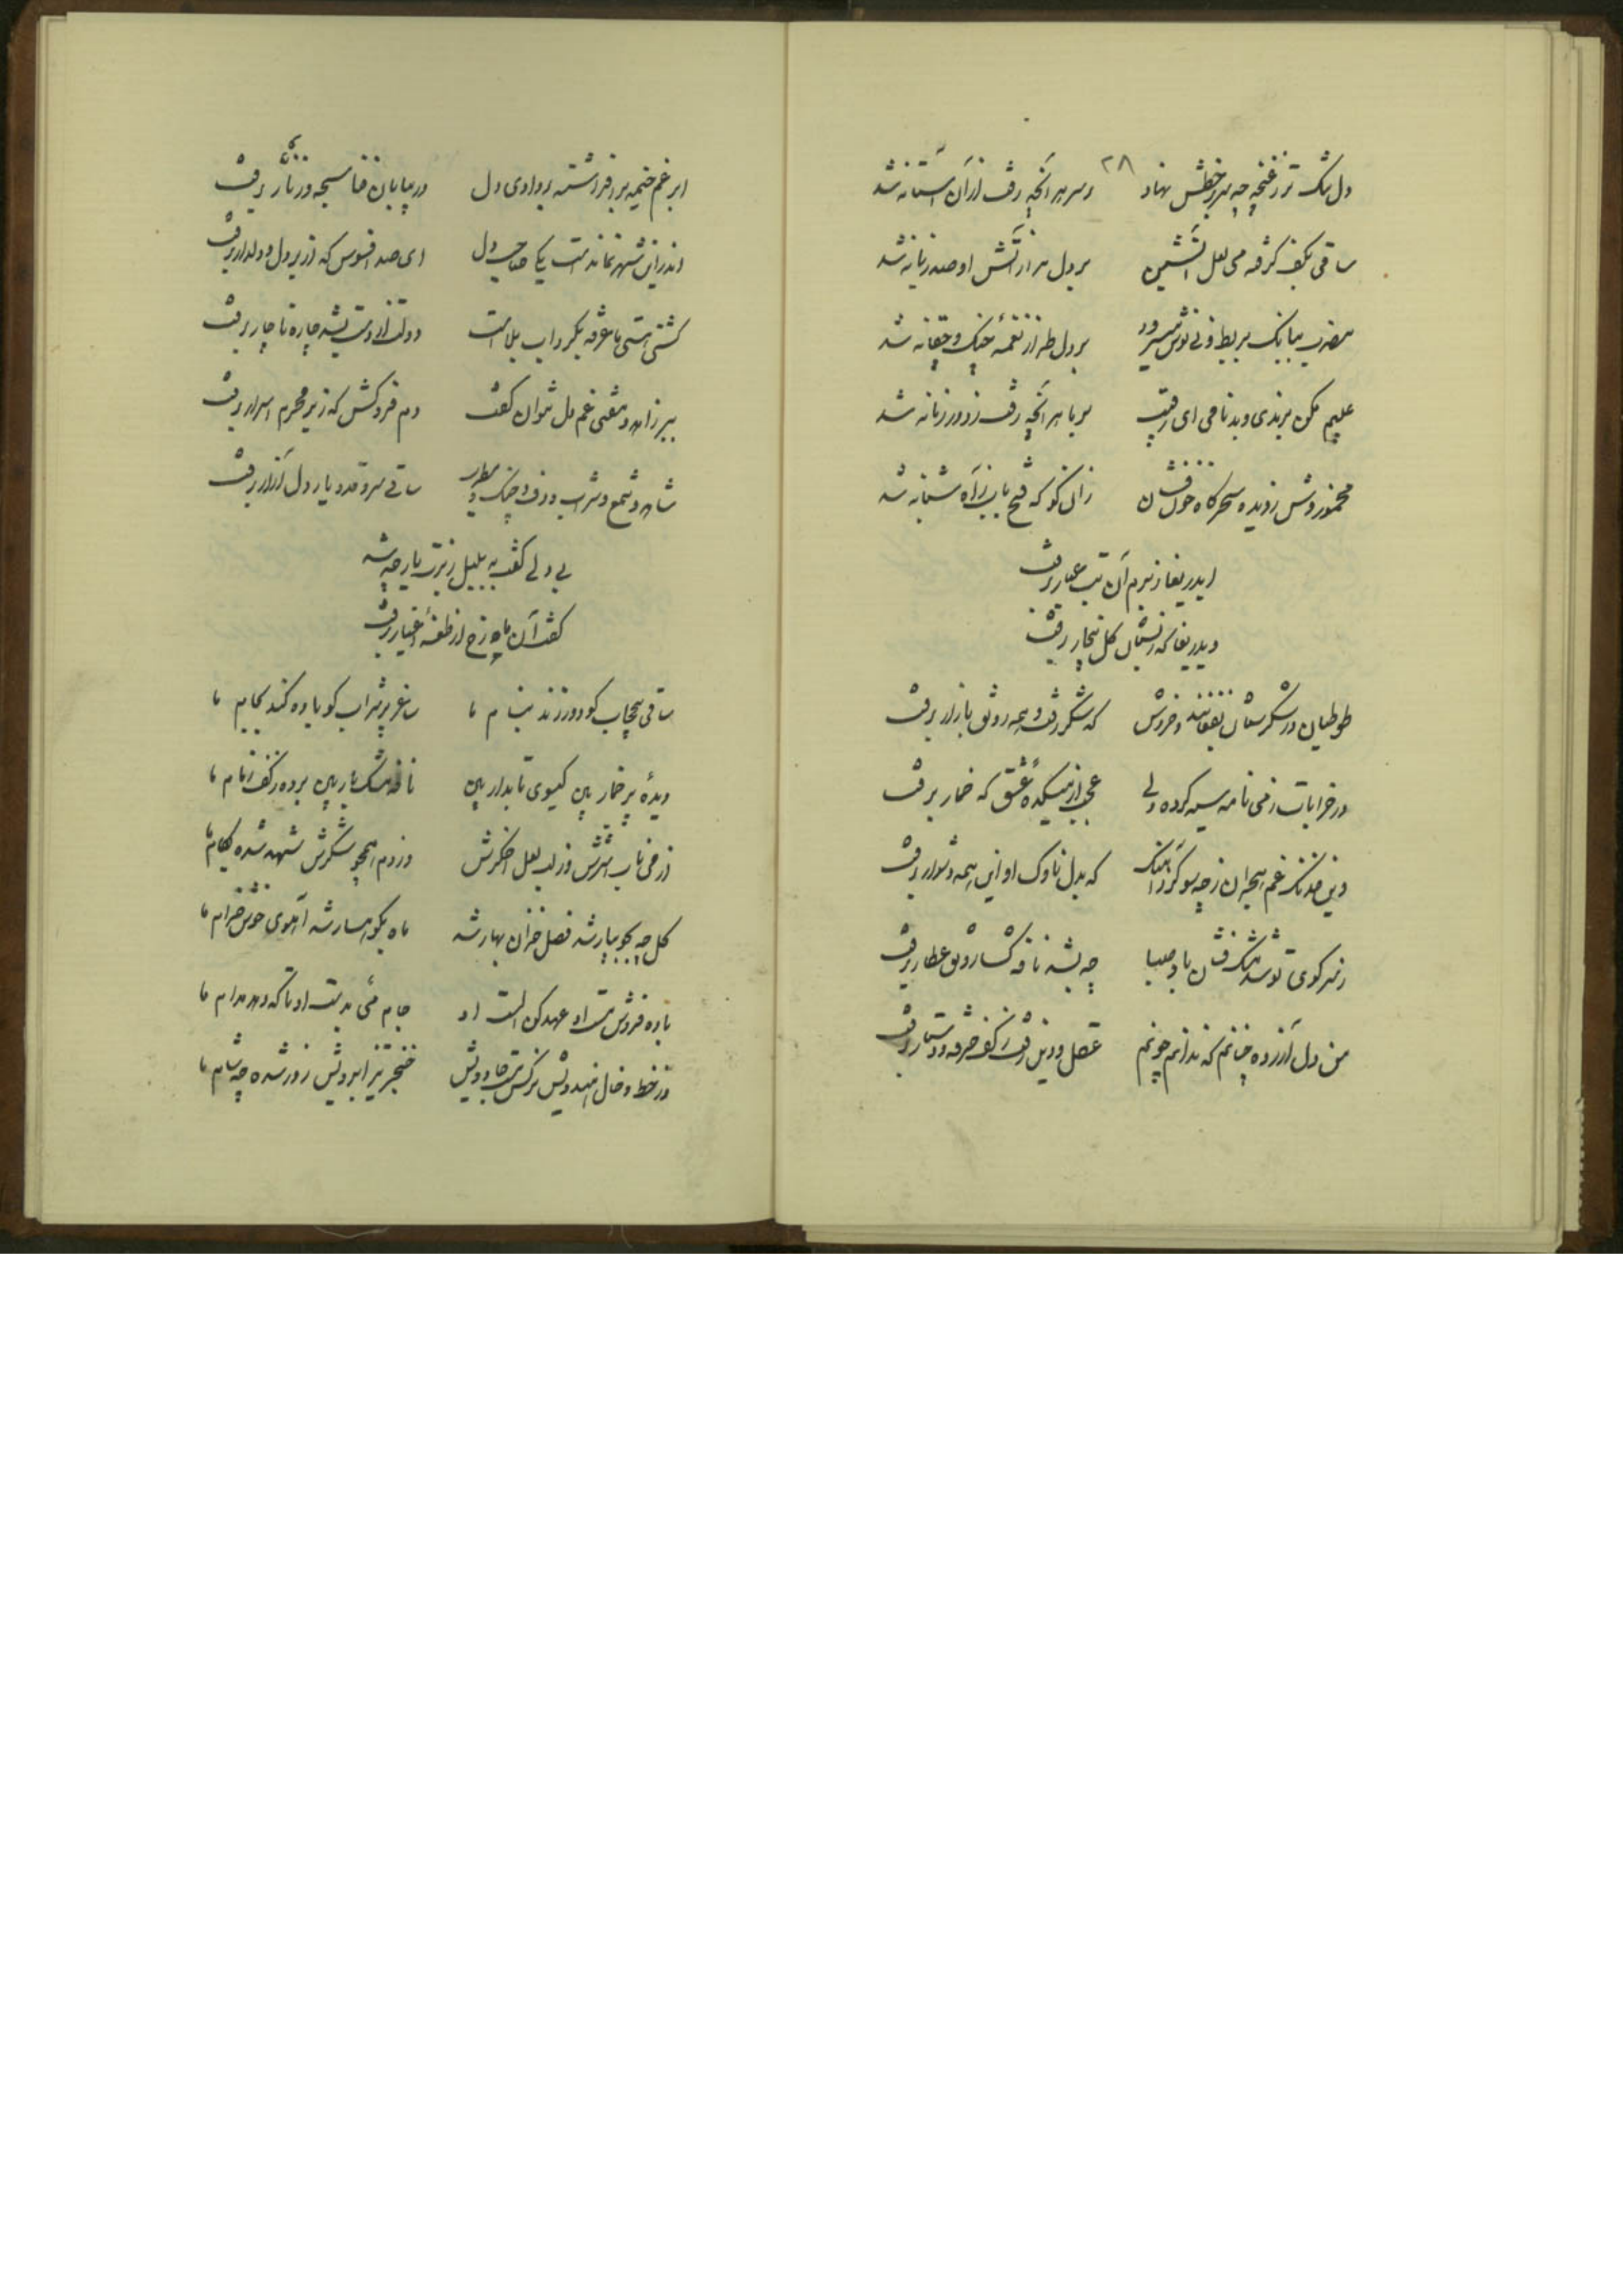 ۲۸
دل تنگ تر ز غنچه چه سر بر خطش نهاد    بر سر هر آنچه رفت از آن آستانه شد
ساقی بکف گرفته می لعل آتشین    بر دل هزار آتش او صد زبانه شد
مضرب ببانک بربط و نی نوش سرود    بر دل طرز نغمه چنک و چغانه شد
عیبم مکن برندی و بدنامی ای رقیب    بر ما هر آنچه رفت ز دور زمانه شد
مخمور وش ز دیده سحرگاه خون فشان    زان کو که فتح باب ز راه شبانه شد
ایدریغا ز برم آن بت عیار برفت
ویدریغا که ز بستان گل بیخار برفت
طوطیان در شکرستان بفغانند و خروش    که شکر رفت و همه رونق بازار برفت
در خرابات ز می نامه سیه کرده ولی    عجب از میکدهٔ عشق که خمار برفت
وین خدنک غم هجران ز چه سو کرد آهنک    که بدل ناوک او این همه دشوار برفت
ز سر کوی تو شد مشک فشان باد صبا    چه بشد نافه گشا رونق عطار برفت
من دل آزرده چنانم که ندانم چونم    عقل و دین رفت ز کف خرقه و دستار برفت
ابر غم خیمه برافراشته بر وادی دل    در بیابان فنا سبحه و زنار برفت
اندر این شهر نماندست یکی صاحب دل    ای صد افسوس که از بر دل و دلدار برفت
کشتی هستی ما غرقه بگرداب بلاست    دولت از دست بشد چاره ناچار برفت
بر زاهد و مفتی غم دل نتوان گفت    دم فروکش که ز بر محرم اسرار برفت
شاهد و شمع و شراب و دف و چنک و مطرب    ساقی سرو قد و یار دل آزار برفت
بی دلی گفت به بلبل ز برت یار چه شد
گفت آن ماه رخ از طعنهٔ اغیار برفت
ساقی بیحجاب کو دور زند بنام ما    ساغر پر شراب کو باده کند بجام ما
دیدهٔ پر خمار بین گیسوی تابدار بین    نافه مشک بار بین برده ز کف زمام ما
از می ناب شربتش وز لب لعل شکرش    وز دم همچو شکرش شهد شده بکام ما
گل چه بجویبار شد فصل خزان بهار شد    ماه بکوهسار شد آهوی خوش خرام ما
باده فروش مست او عهد کن الست او    جام می بدست او تا که دهد مدام ما
در خط و خال هندویش نرگس مست جادویش    خنجر تیز ابرویش روز شده چه شام ما